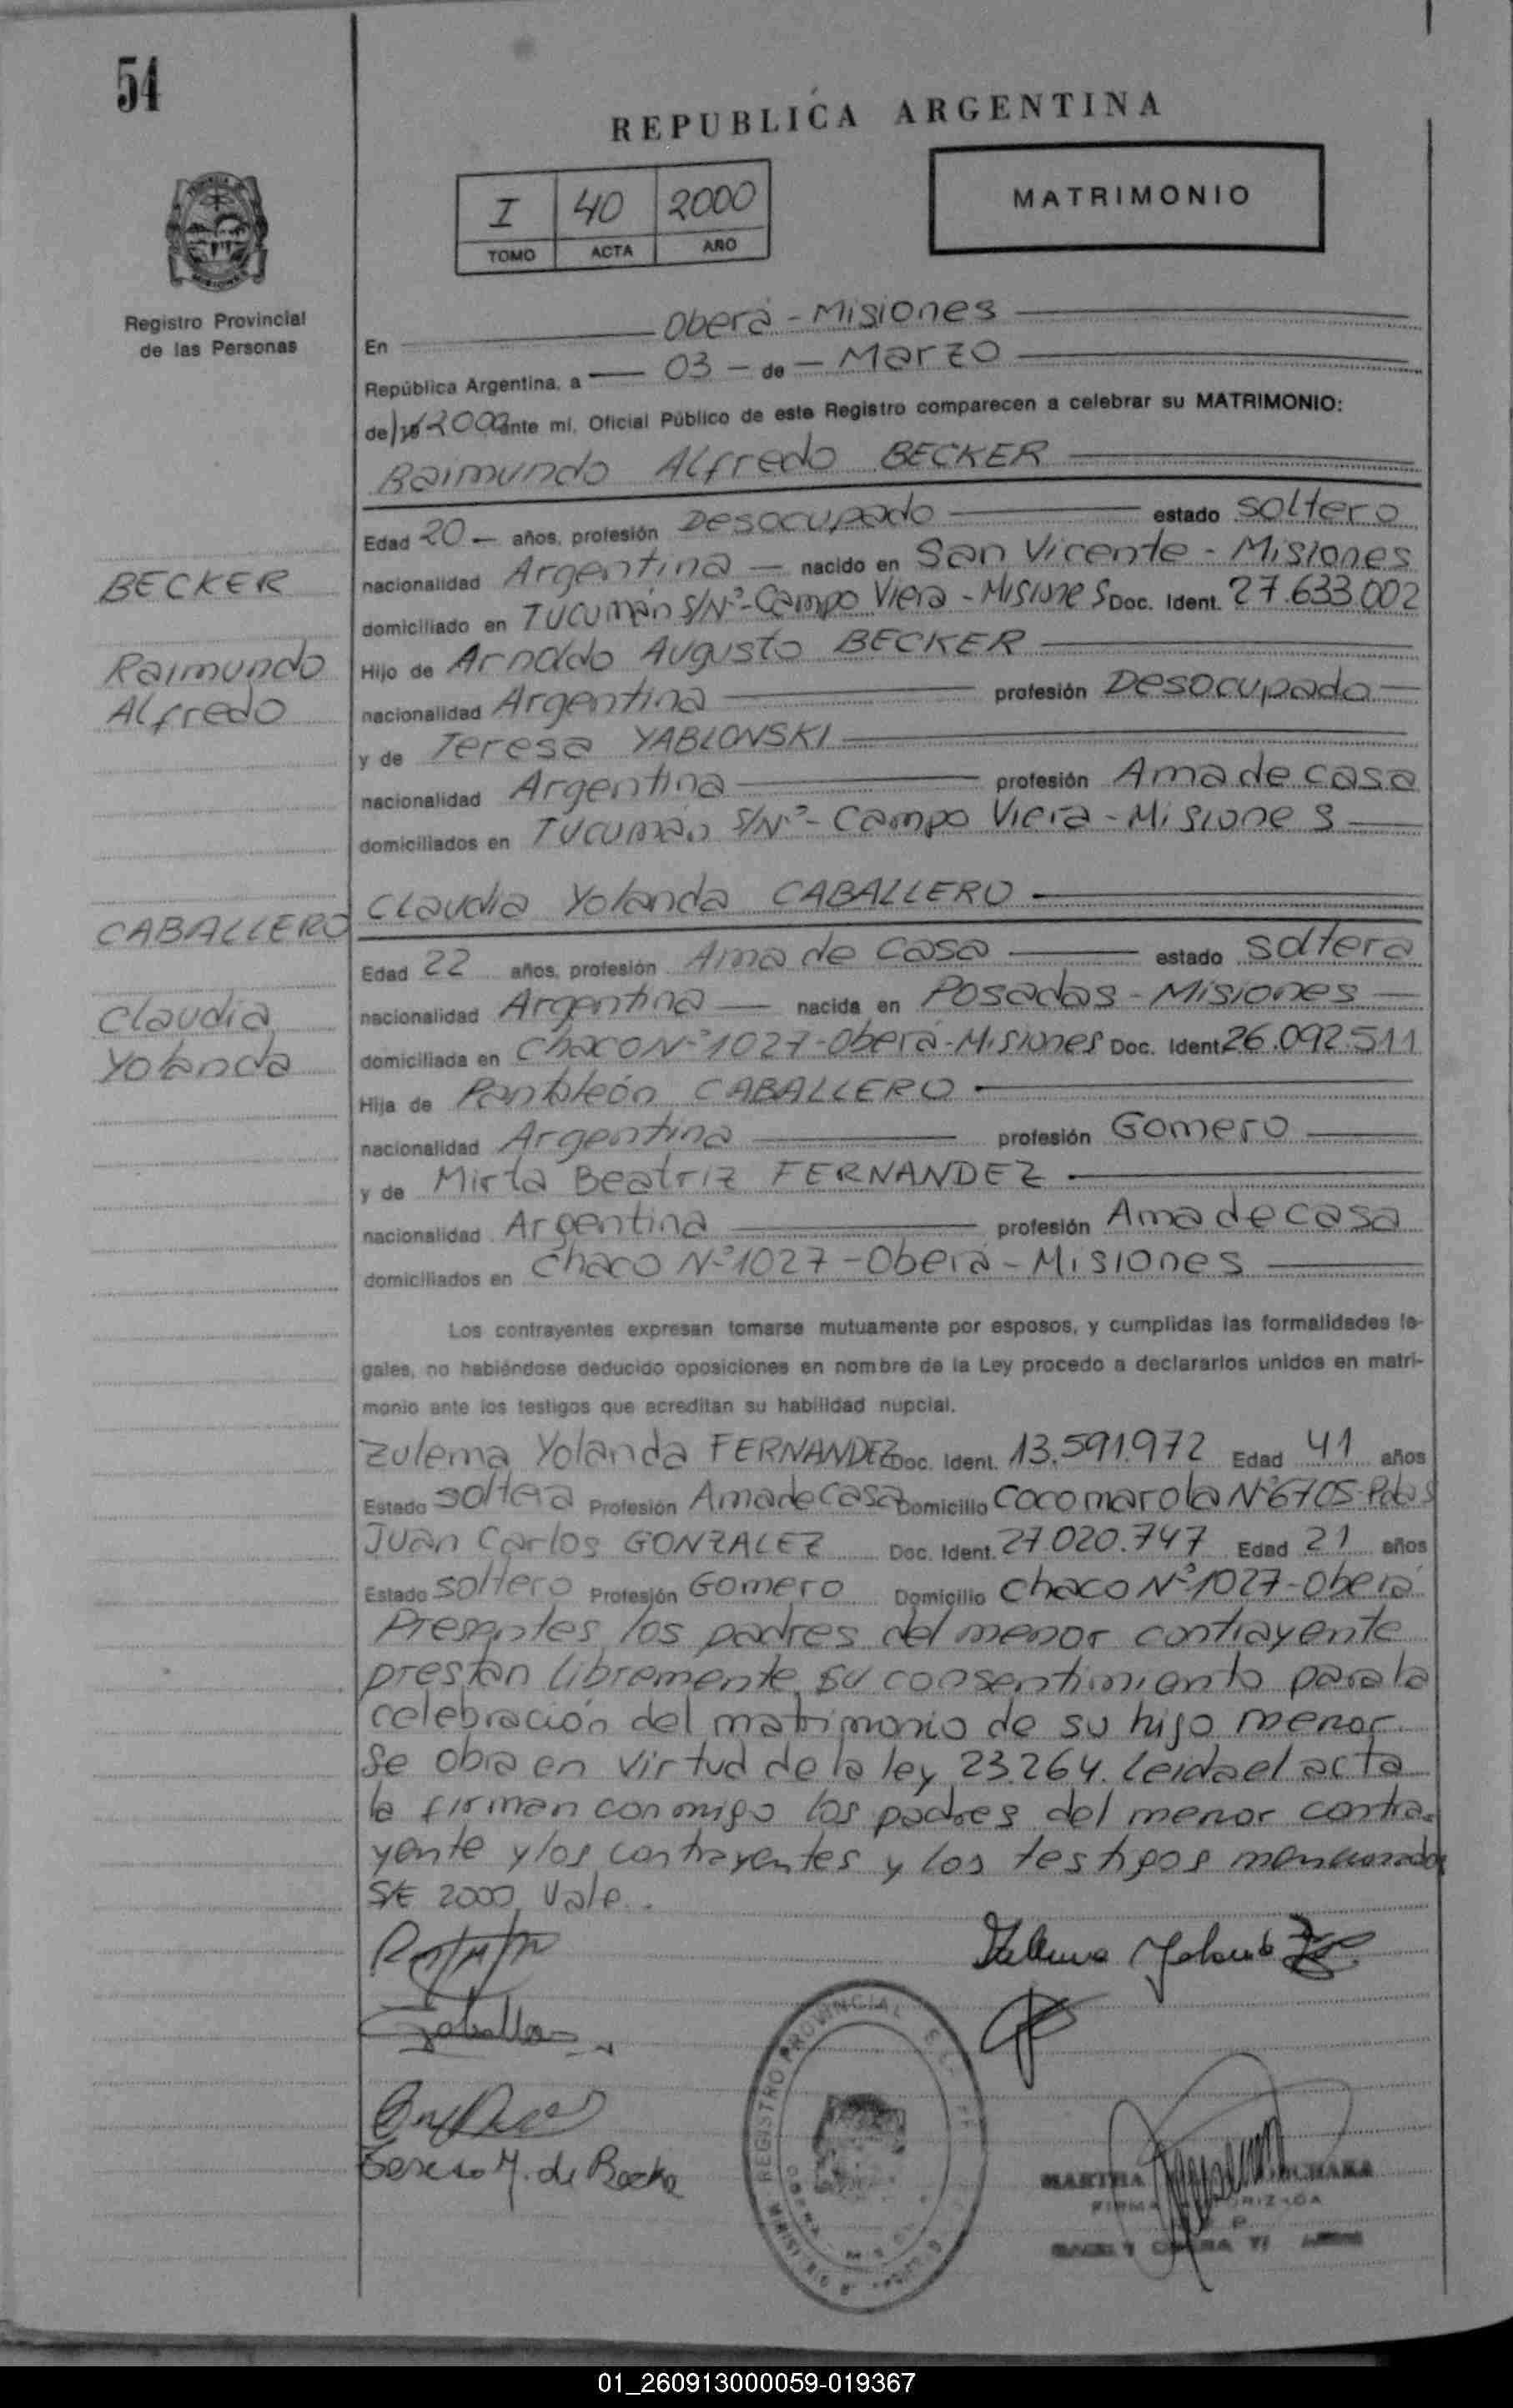 54
REPUBLICA ARGENTINA
I 40 2000
TOMO ACTA AÑO
MATRIMONIO
Registro Provincial
de las Personas
En Oberá - Misiones
República Argentina, a 03 - de - Marzo
de 19 2000 ante mí, Oficial Público de este Registro comparecen a celebrar su MATRIMONIO:
Raimundo Alfredo BECKER
Edad 20 - años, profesión Desocupado estado soltero
BECKER
nacionalidad Argentina - nacido en San Vicente - Misiones
domiciliado en Tucumán S/Nº - Campo Viera - Misiones Doc. Ident. 27.633.002
Raimundo
Hijo de Arnoldo Augusto BECKER
Alfredo
nacionalidad Argentina profesión Desocupado
y de Teresa YABLONSKI
nacionalidad Argentina profesión Ama de casa
domiciliados en Tucumán S/Nº - Campo Viera - Misiones
CABALLERO
Claudia Yolanda CABALLERO
Edad 22 años, profesión Ama de casa estado soltera
Claudia
nacionalidad Argentina - nacida en Posadas - Misiones
Yolanda
domiciliada en Chaco Nº 1027 - Oberá - Misiones Doc. Ident. 26.092.511
Hija de Pantaleón CABALLERO
nacionalidad Argentina profesión Gomero
y de Mirta Beatriz FERNANDEZ
nacionalidad Argentina profesión Ama de casa
domiciliados en Chaco Nº 1027 - Oberá - Misiones
Los contrayentes expresan tomarse mutuamente por esposos, y cumplidas las formalidades le-
gales, no habiéndose deducido oposiciones en nombre de la Ley procedo a declararlos unidos en matri-
monio ante los testigos que acreditan su habilidad nupcial.
Zulema Yolanda FERNANDEZ Doc. Ident. 13.591.972 Edad 41 años
Estado soltera Profesión Ama de casa Domicilio Cocomarola Nº 6705-Pdas
Juan Carlos GONZALEZ Doc. Ident. 27.020.747 Edad 21 años
Estado soltero Profesión Gomero Domicilio Chaco Nº 1027 - Oberá
Presentes los padres del menor contrayente
prestan libremente su consentimiento para la
celebración del matrimonio de su hijo menor.
Se obra en virtud de la ley 23.264. Leida el acta
la firman conmigo los padres del menor contra-
yente y los contrayentes y los testigos mencionados
S/E 2000 Vale.
Teresa Y. de Becker
REGISTRO PROVINCIAL
MARTHA
FIRMA AUTORIZADA
01_260913000059-019367